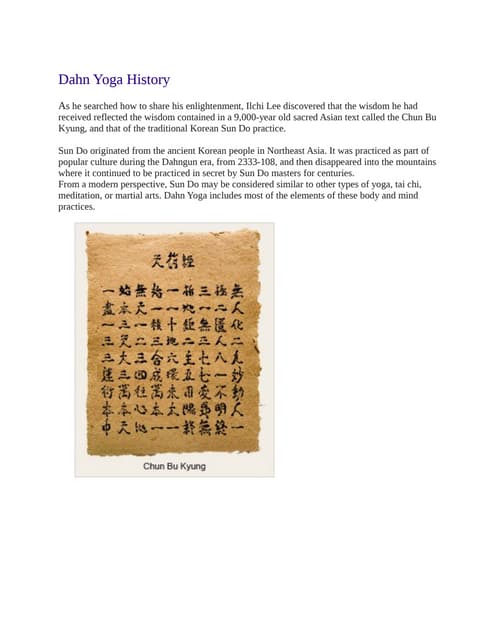 Dahn Yoga History
As he searched how to share his enlightenment, Ilchi Lee discovered that the wisdom he had
received reflected the wisdom contained in a 9,000-year old sacred Asian text called the Chun Bu
Kyung, and that of the traditional Korean Sun Do practice.
Sun Do originated from the ancient Korean people in Northeast Asia. It was practiced as part of
popular culture during the Dahngun era, from 2333-108, and then disappeared into the mountains
where it continued to be practiced in secret by Sun Do masters for centuries.
From a modern perspective, Sun Do may be considered similar to other types of yoga, tai chi,
meditation, or martial arts. Dahn Yoga includes most of the elements of these body and mind
practices.
天符經
一始無始一析三極無
盡本天一一地一二人
一三一積十鉅無匱化
三天二三地二三人二
三大三合六生七八
運三四成環五七一妙
衍萬往萬來用變不動
本本心本太陽昻明人
中天地一一終無終一
Chun Bu Kyung